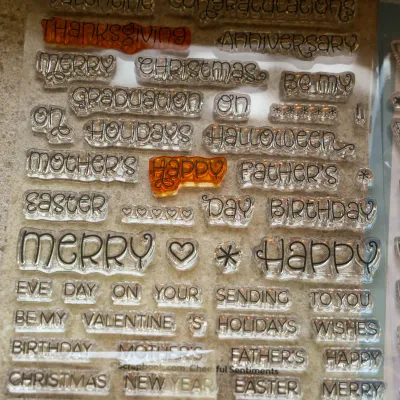 Valentine Congratulations
Thanksgiving Anniversary
Merry Christmas Be My
Graduation on
on Holidays Halloween
Mother's Happy Father's
Easter Day Birthday
Merry Happy
EVE DAY ON YOUR SENDING TO YOU
BE MY VALENTINE 'S HOLIDAYS WISHES
BIRTHDAY MOTHER'S FATHER'S HAPPY
Cheerful Sentiments
CHRISTMAS NEW YEAR EASTER MERRY